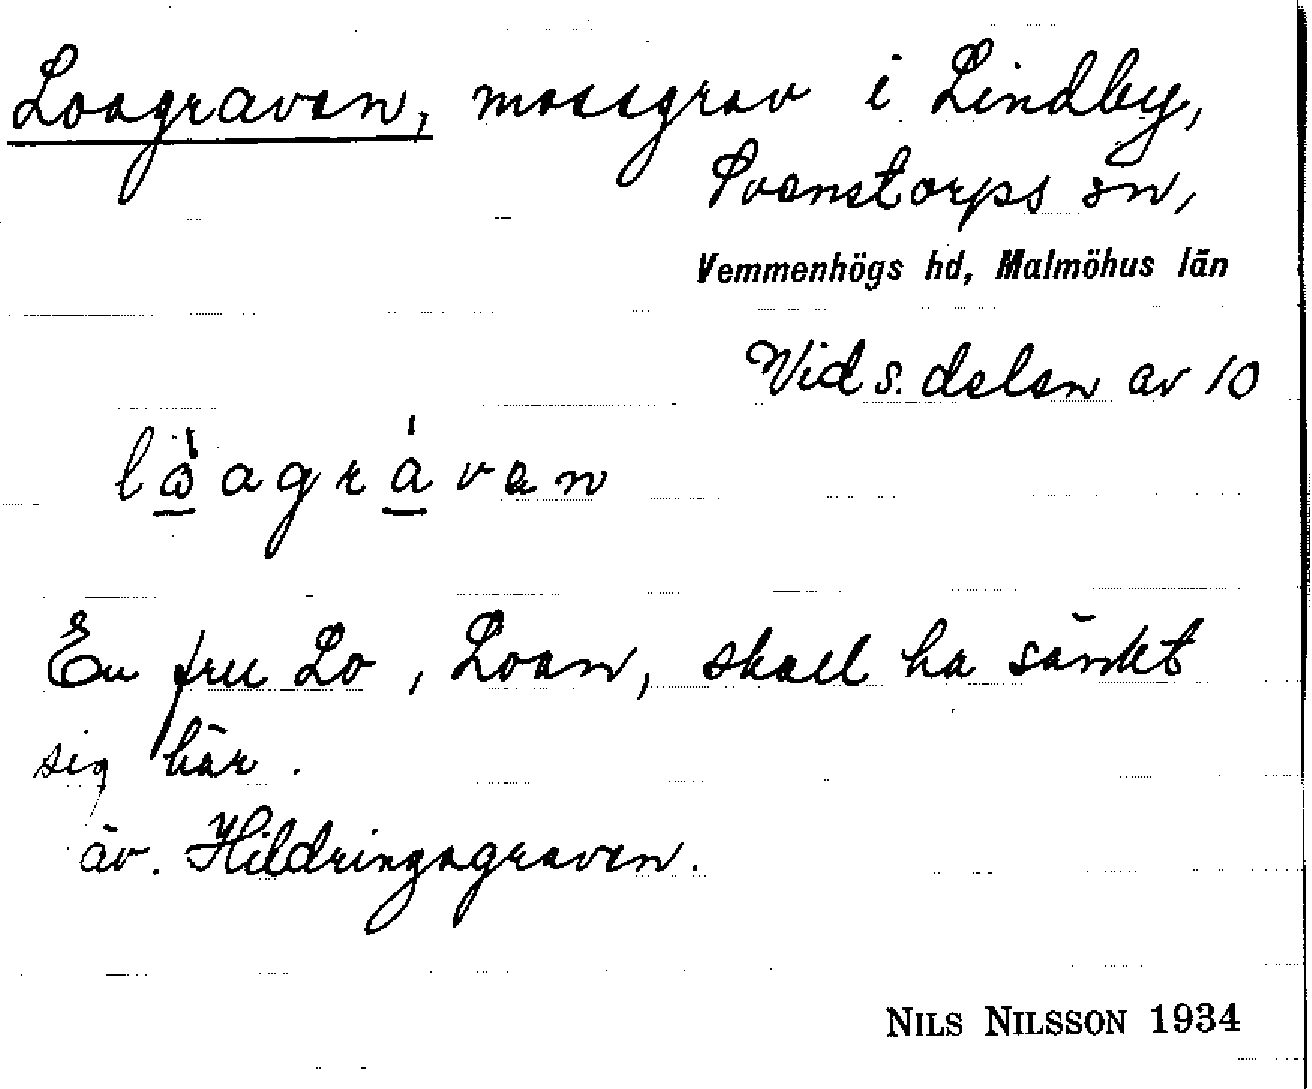 Loagraven, mossgrav i Lindby,
Svenstorps sn,
Vemmenhögs hd, Malmöhus län
Vid s. delen av 10
lòagráven
En fru Lo, Loan, skall ha sänkt
sig här.
äv. Hildringagraven.
NILS NILSSON 1934